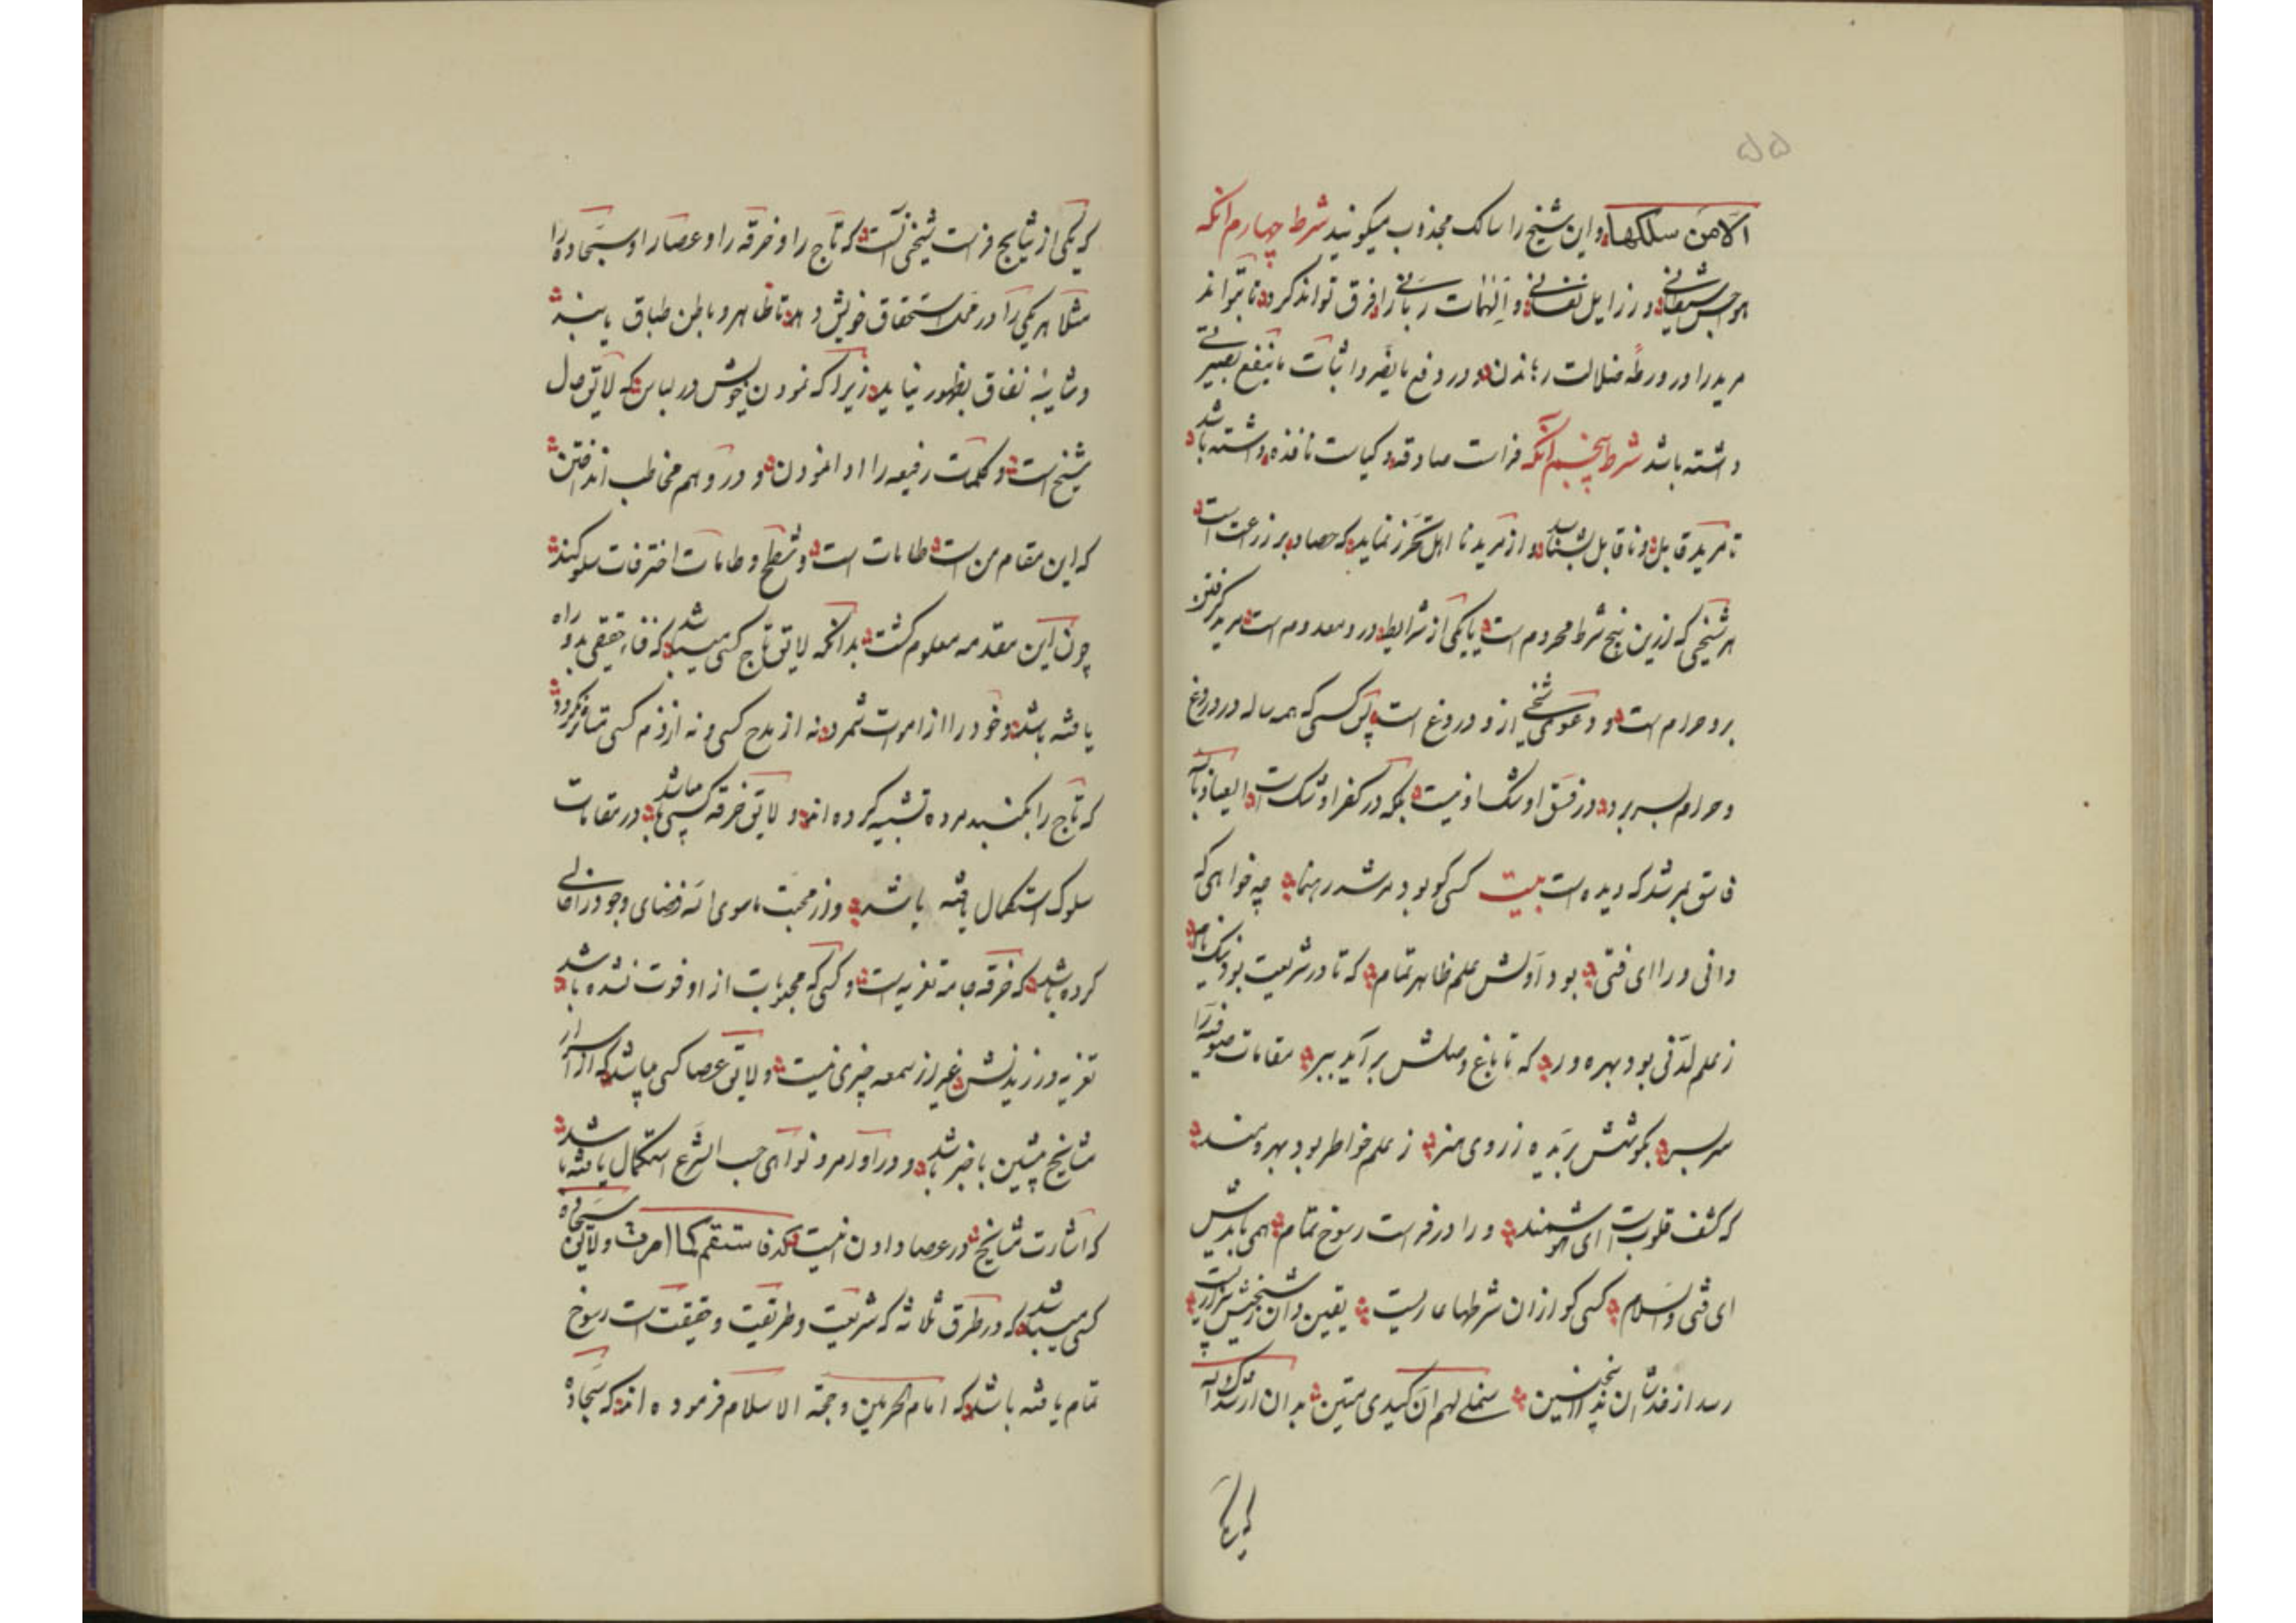 ۵۵
الا من سلکها و این شیخ را سالک مجذوب میکویند شرط چهارم آنکه
هواجس شیطانی و رزایل نفسانی و الهامات ربانی را فرق تواند کرد تا نتواند
مرید را در ورطه ضلالت رهاندن و در دفع مایضر و اثبات ماینفع بصیرتی
داشته باشد شرط پنجم آنکه فراست صادقه و کیاست نافذه داشته باشد
تا مرید قابل و ناقابل بشناسد و از مرید نا اهل تحرز نماید که حصاد بر زرعت است
هر شیخی که ازین پنج شرط محروم است یا یکی از شرایط درو معدوم است مرید گرفتن
برو حرام است و دعوی شیخی ازو دروغ است پس کسی که همه ساله در دروغ
و حرام بسر برد در فسق او شک او نیست بلکه در کفر او شک است العیاذ بالله
فاسق مرشد که دیده است بیت کسی کو بود مرشد رهنما چه خواهی که
دانی ورا ای فتی بود اولش علم ظاهر تمام که تا در شریعت بود نیک نام
ز علم لدنی بود بهره ور که تا باغ وصلش بر آید ببر مقامات صوفیه را
سربسر بکوشش بریده ز روی هنر ز علم خواطر بود بهره مند
که کشف قلوبست ای هوشمند ورا در فراست رسوخ تمام همی بایدش
ای فتی والسلام کسی کو ازان شرطها عاریست یقین دان شیخیش بیزاریست
رسد از خدا ان پذیر ازنسین سنملی لهم ان کیدی متین بدان ارشدک الله
که یکی
که یکی از نتایج فراست شیخی آنست که تاج را و خرقه را و عصا را و سجاده را
مثلا هر یکی را در محل استحقاق خویش دهد تا ظاهر و باطن طباق یابند
و شایبه نفاق بظهور نیاید زیرا که نمودن خویش در لباسی که لایق حال
شیخ است و کلمات رفیعه را ادا نمودن و در وهم مخاطب انداختن
که این مقام من است طامات است و شطح و طامات اخترفات سلوکند
چون این مقدمه معلوم کشت بدانکه لایق تاج کسی میباشد که فناء حقیقی بدو راه
یافته باشد و خود را از اموات شمرد نه از مدح کسی و نه از ذم کسی متاثر نکردد
که تاج را بکنبد مرده تشبیه کرده اند و لایق خرقه کسی میباشد در مقامات
سلوک استکمال یافته باشد و از محبت ماسوی الله فضای وجود را خالی
کرده باشد که خرقه جامه تعزیه است و کسی که محبوبات از او فوت نشده باشد
تعزیه ورزیدنش غیر از سمعه چیزی نیست و لایق عصا کسی میباشد که از اسرار
مشایخ پیشین باخبر باشد و در اوامر و نواهی حسب الشرع استکمال یافته باشد
که اشارت مشایخ در عصا دادن نیست مکر فاستقم کما امرت و لایق سجاده
کسی میباشد که در طرق ثلاثه که شریعت و طریقت و حقیقت است رسوخ
تمام یافته باشد که امام الحرمین و حجة الاسلام فرموده اند که سجاده